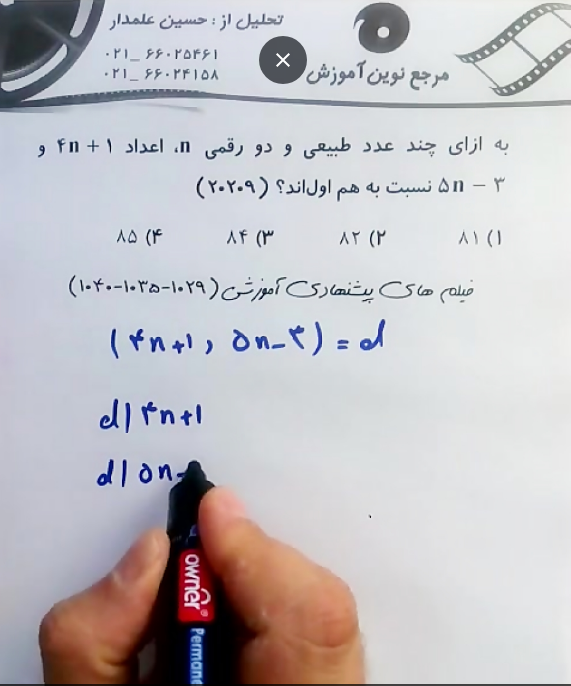 تحلیل از : حسین علمدار
۰۲۱ _ ۶۶۰۲۵۴۶۱
۰۲۱ _ ۶۶۰۲۴۱۵۸
مرجع نوین آموزش
به ازای چند عدد طبیعی و دو رقمی n، اعداد ۴n + ۱ و
۵n − ۳ نسبت به هم اول‌اند؟ (۲۰۲۰۹)
۱) ۸۱ ۲) ۸۲ ۳) ۸۴ ۴) ۸۵
فیلم های پیشنهادی آموزشی (۱۰۲۹-۱۰۳۵-۱۰۴۰)
(۴n+۱ , ۵n-۳) = d
d | ۴n+۱
d | ۵n-
owner®
Permane